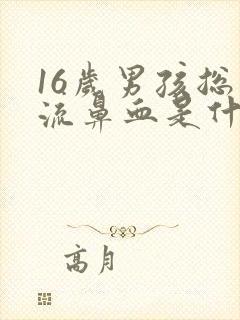 16歲男孩总
流鼻血是什
高月